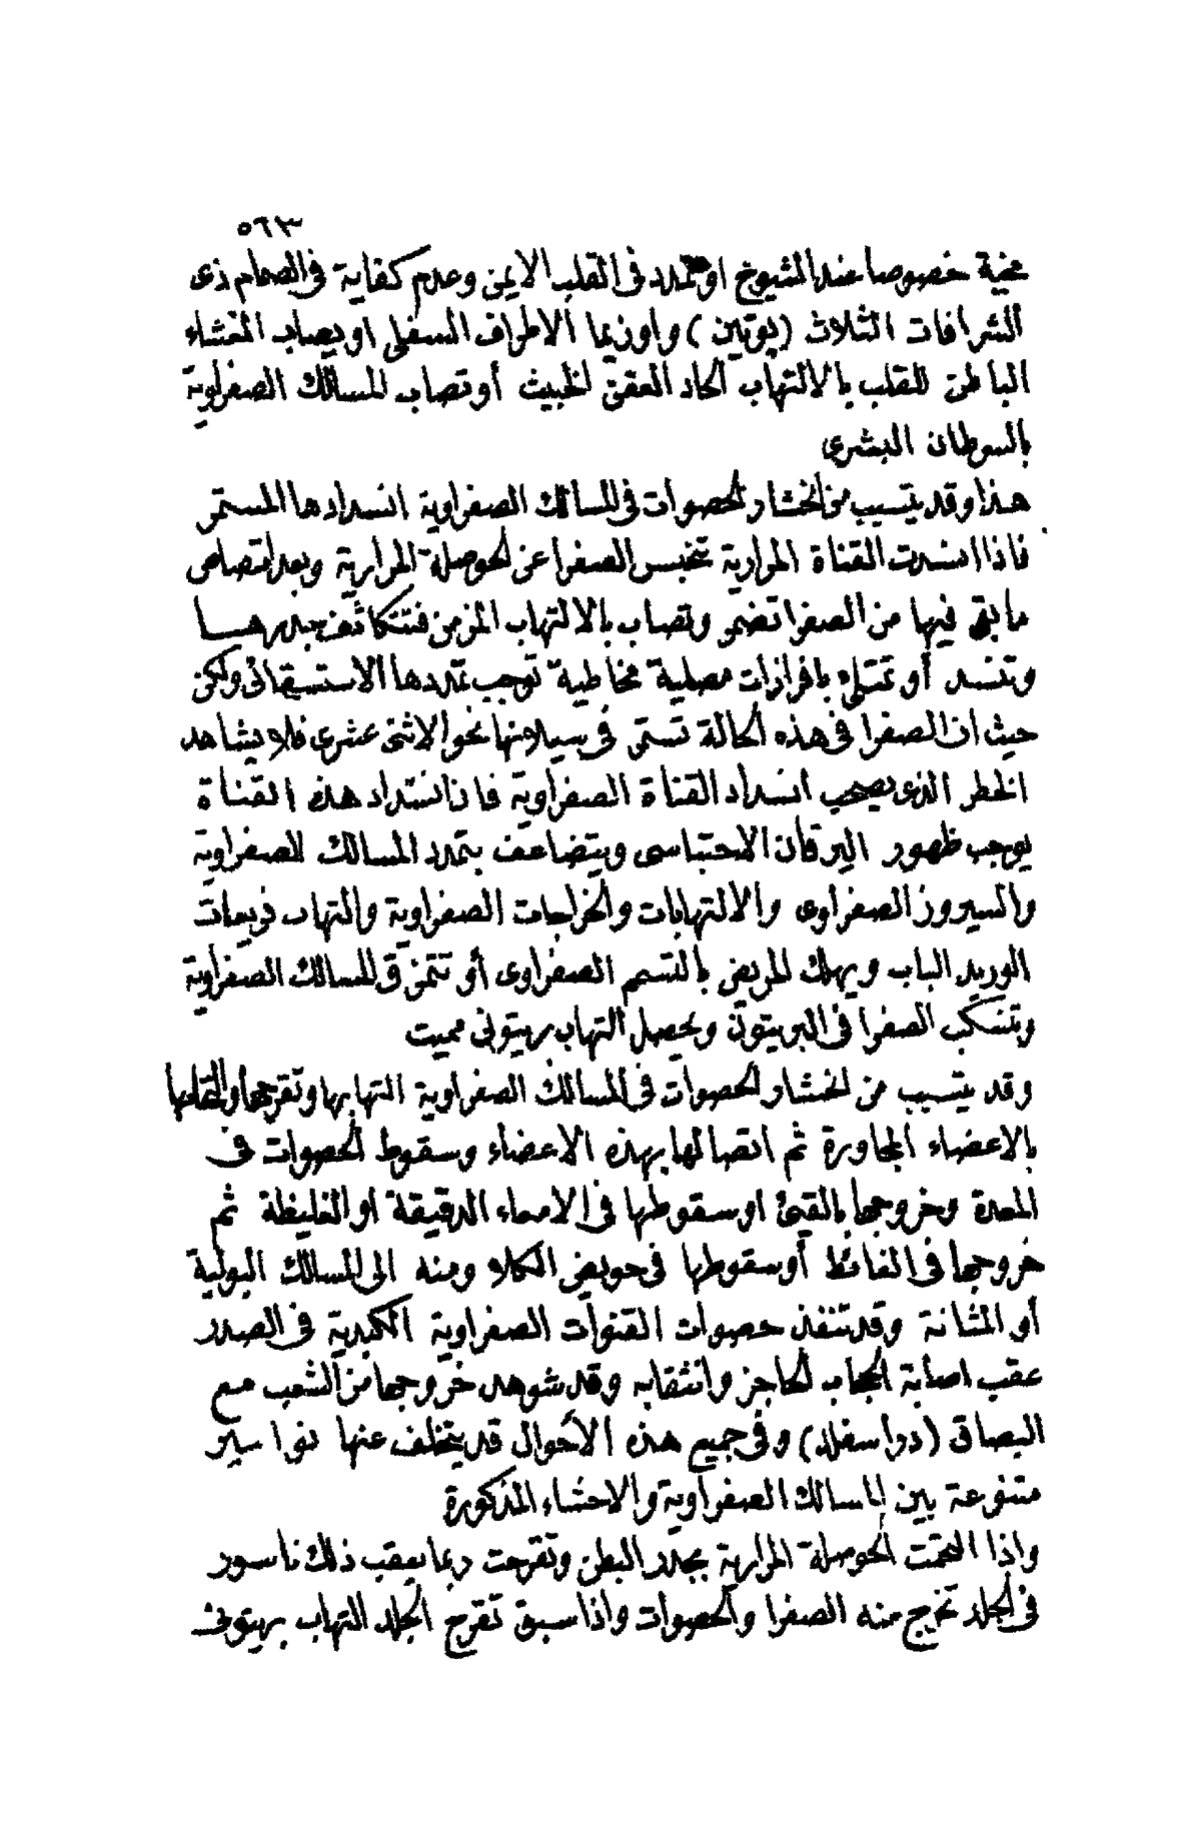 ٥٦٣
مخية خصوصا عند الشيوخ او تمدد فى القلب الايمن وعدم كفاية فى الصمام ذى
الشرافات الثلاث (پوتين) واوزيما الاطراف السفلى او يصاب الغشاء
الباطن للقلب بالالتهاب الحاد العفن الخبيث أو تصاب المسالك الصفراوية
بالسرطان البشرى
هذا وقد يتسبب من انحشار الحصوات فى المسالك الصفراوية انسدادها المستمر
فاذا انسدت القناة المرارية تنحبس الصفرا عن الحوصلة المرارية وبعد امتصاص
ما بقى فيها من الصفرا تضمر وتصاب بالالتهاب المزمن فتتكاثف جدرهـا
وتنسد أو تمتلئ بافرازات مصلية مخاطية توجب تمددها الاستسقائى ولكن
حيث ان الصفرا فى هذه الحالة تستمر فى سيلانها نحو الاثنى عشرى فلا يشاهد
الخطر الذى يصحب انسداد القناة الصفراوية فان انسداد هذه القناة
يوجب ظهور اليرقان الاحتباسى ويتضاعف بتمدد المسالك الصفراوية
والسيروز الصفراوى والالتهابات والخراجات الصفراوية والتهاب فريعات
الوريد الباب ويهلك المريض بالتسمم الصفراوى أو تتمزق المسالك الصفراوية
وتنسكب الصفرا فى البريتون ويحصل التهاب بريتونى مميت
وقد يتسبب من انحشار الحصوات فى المسالك الصفراوية التهابها وتقرحها والتصاقها
بالاعضاء المجاورة ثم اتصالها بهذه الاعضاء وسقوط الحصوات فى
المعدة وخروجها بالقيئ او سقوطها فى الامعاء الدقيقة او الغليظة ثم
خروجها فى الغائط أو سقوطها فى حويض الكلا ومنه الى المسالك البولية
أو المثانة وقد تنفذ حصوات القنوات الصفراوية الكبدية فى الصدر
عقب اصابة الحجاب الحاجز وانثقابه وقد شوهد خروجها من الشعب مع
البصاق (دراسفلد) وفى جميع هذه الأحوال قد يتخلف عنها نواسير
متنوعة بين المسالك الصفراوية والاحشاء المذكورة
واذا التحمت الحوصلة المرارية بجدر البطن وتقرحت ربما يعقب ذلك ناسور
فى الجلد تخرج منه الصفرا والحصوات واذا سبق تقرح الجلد التهاب بريتونى